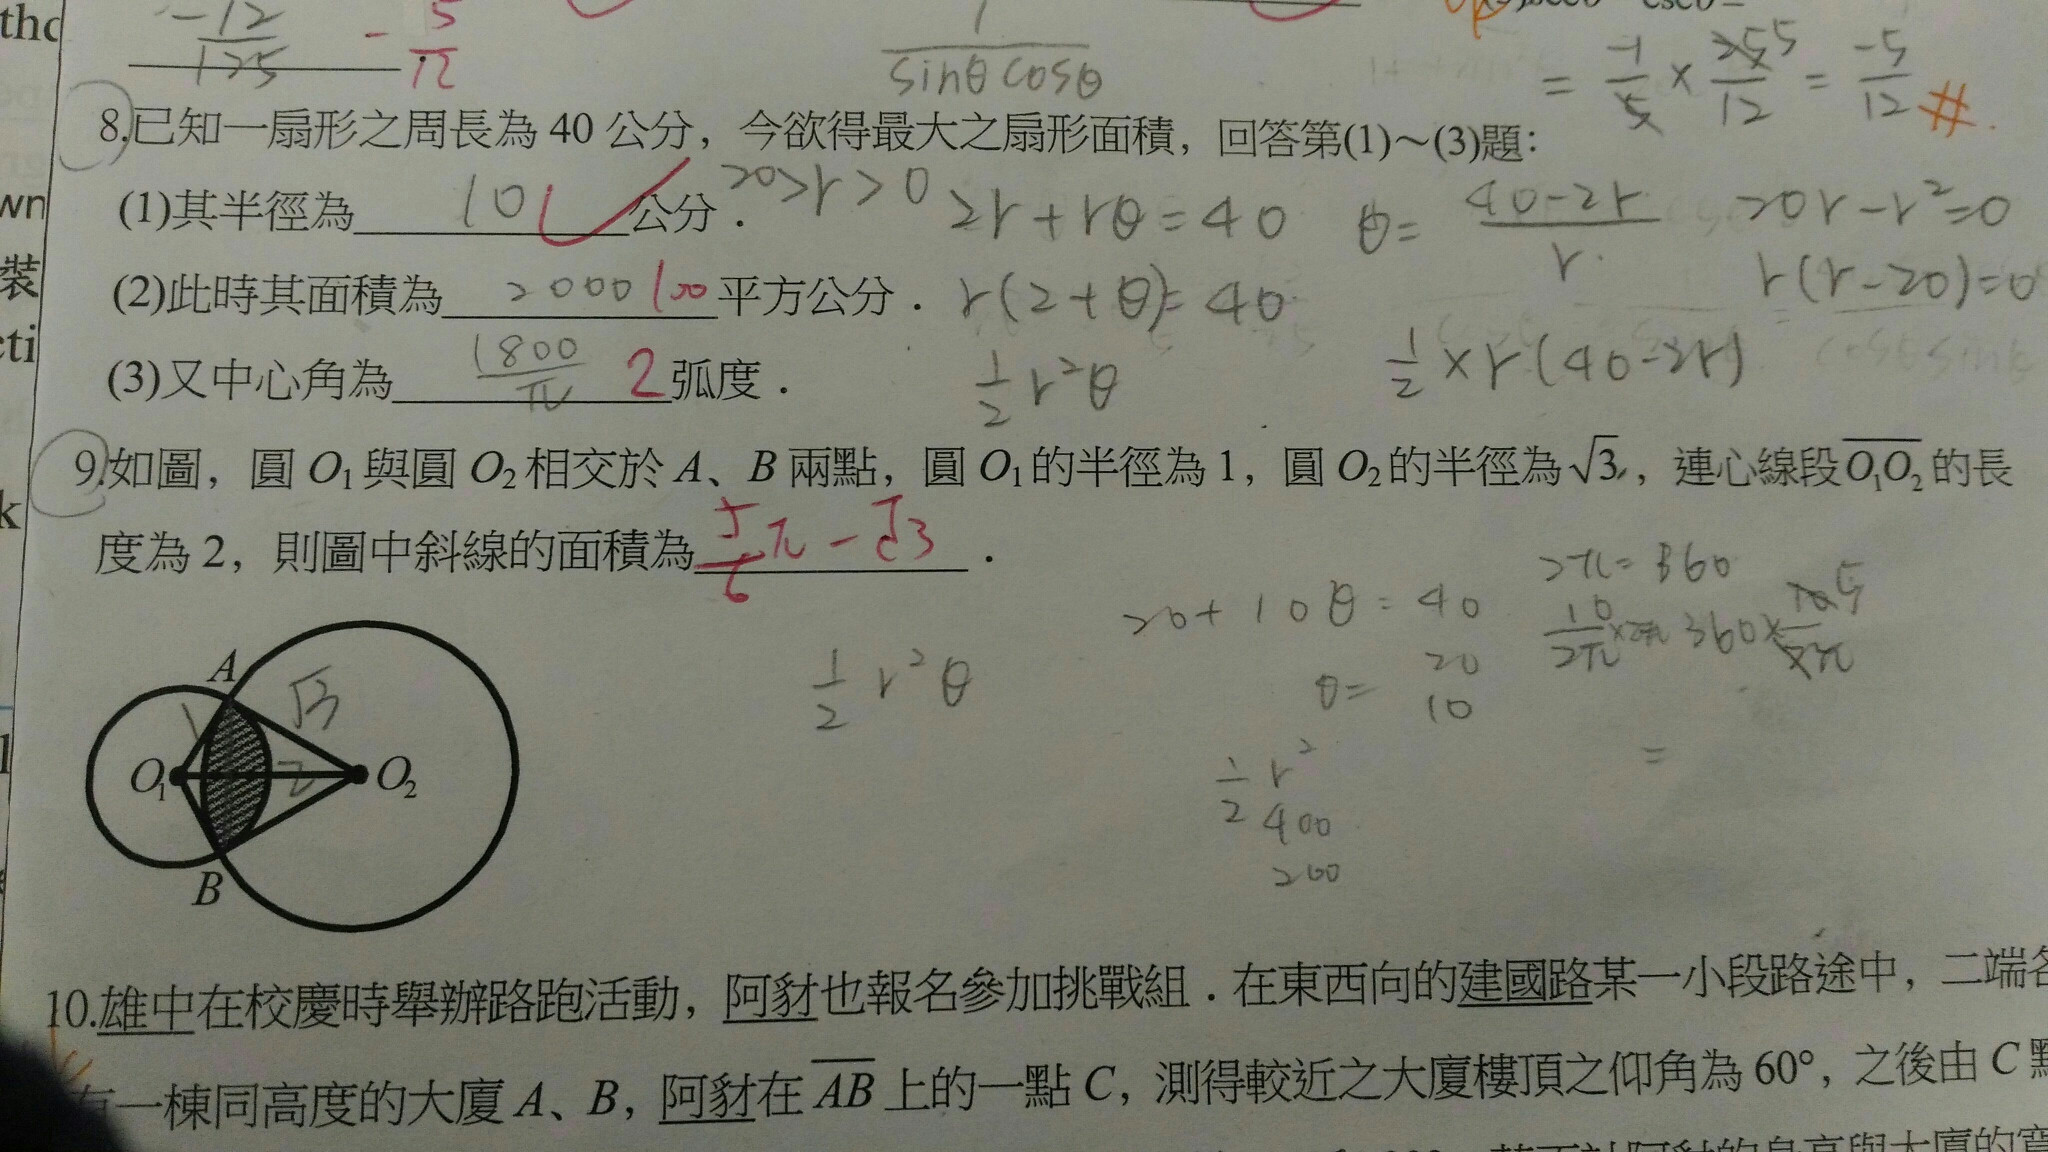 -12/125 - 5/12
1/sinθcosθ
= -1/5 × 25 5/12 = -5/12 #
8.已知一扇形之周長為 40 公分，今欲得最大之扇形面積，回答第(1)～(3)題：
(1)其半徑為 10 公分． 20>r>0 2r+rθ=40 θ= 40-2r/r 20r-r²=0
(2)此時其面積為 2000 100 平方公分． r(2+θ)=40 r(r-20)=0
(3)又中心角為 1800/π 2 弧度． 1/2 r²θ 1/2 ×r(40-2r)
9.如圖，圓 O₁ 與圓 O₂ 相交於 A、B 兩點，圓 O₁ 的半徑為 1，圓 O₂ 的半徑為 √3，連心線段 O₁O₂ 的長
度為 2，則圖中斜線的面積為 5/6 π - √3 ．
20+10θ=40 2π=360
1/2 r²θ 20
θ= 10
1/2 r²
400
200
=
A
1 √3
O₁ 2 O₂
B
10.雄中在校慶時舉辦路跑活動，阿豺也報名參加挑戰組．在東西向的建國路某一小段路途中，二端各
有一棟同高度的大廈 A、B，阿豺在 AB 上的一點 C，測得較近之大廈樓頂之仰角為 60°，之後由 C 點